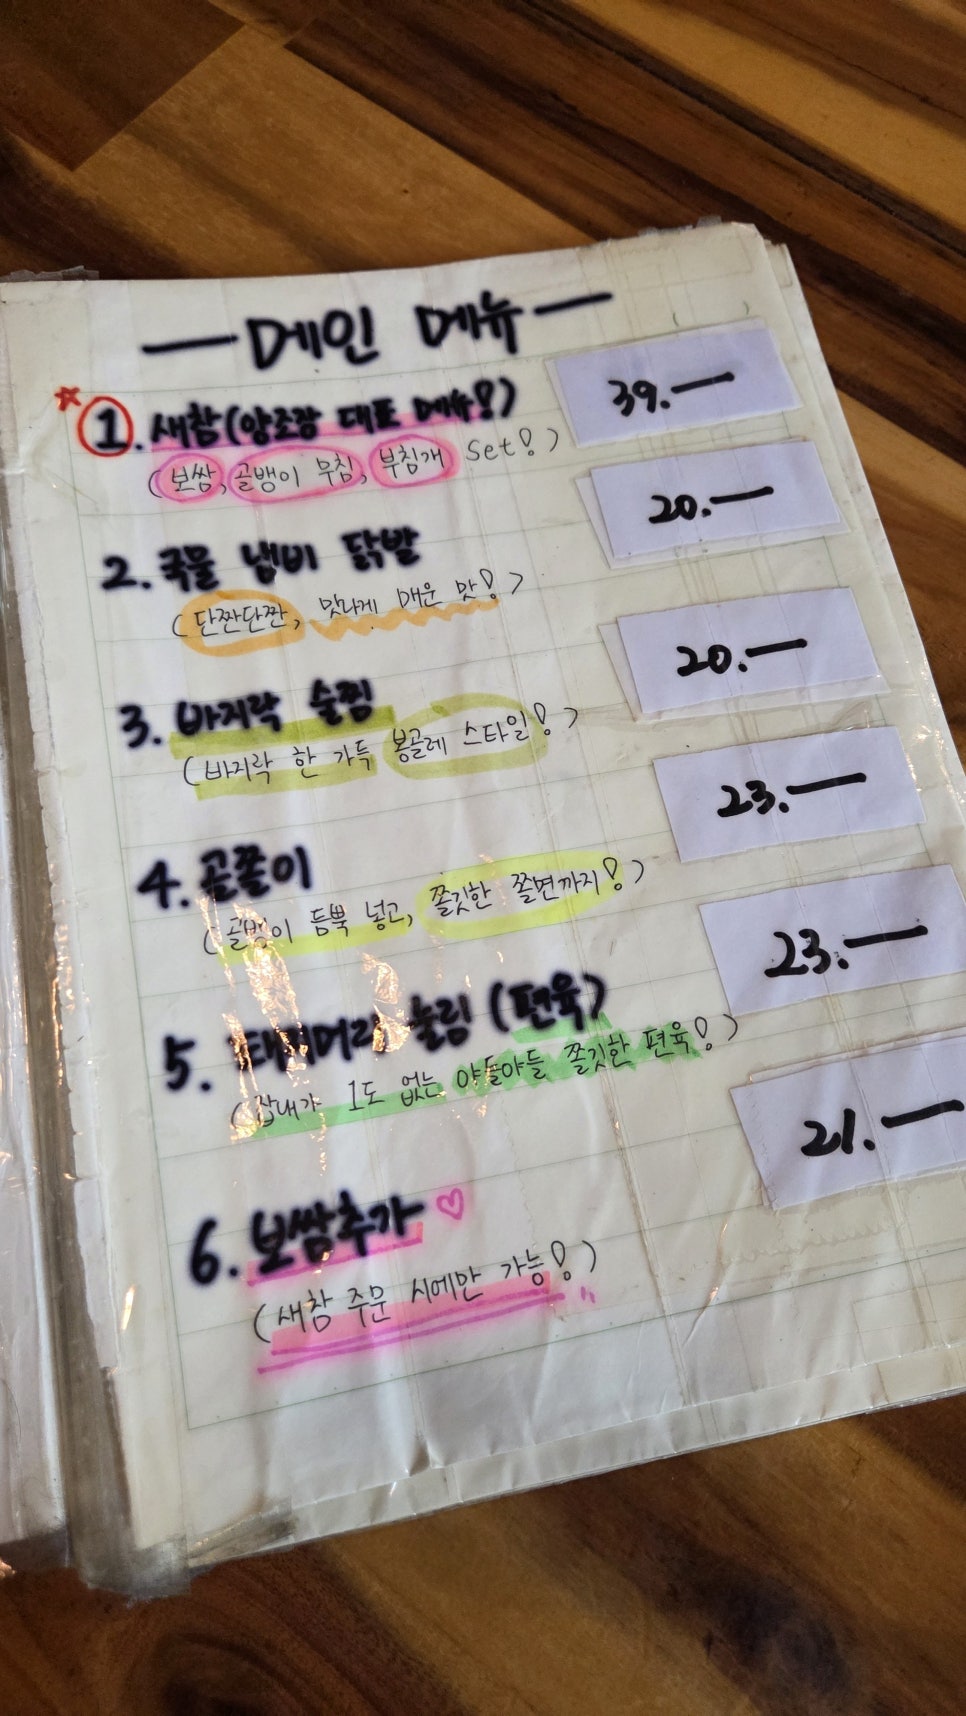 메인 메뉴
1. 새참(양조장 대표 메뉴!) 39.—
(보쌈, 골뱅이 무침, 부침개 set!)
2. 국물 냄비 닭발 20.—
(단짠단짠, 맛나게 매운 맛!)
3. 바지락 술찜 20.—
(바지락 한 가득 봉골레 스타일!)
4. 골쫄이 23.—
(골뱅이 듬뿍 넣고, 쫄깃한 쫄면까지!)
5. 돼지머리 눌림 (편육) 23.—
(잡내가 1도 없는 야들야들 쫄깃한 편육!)
6. 보쌈추가 ♡ 21.—
(새참 주문 시에만 가능!)